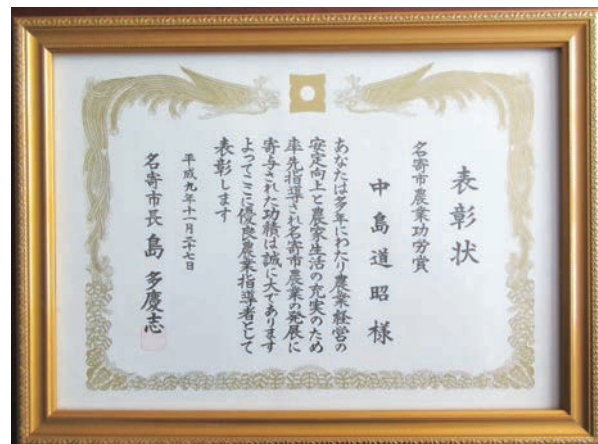 表彰状
名寄市農業功労賞
中島道昭様
あなたは多年にわたり農業経営の
安定向上と農家生活の充実のため
率先指導され名寄市農業の発展に
寄与された功績は誠に大であります
よってここに優良農業指導者として
表彰します
平成九年十一月二十七日
名寄市長島多慶志